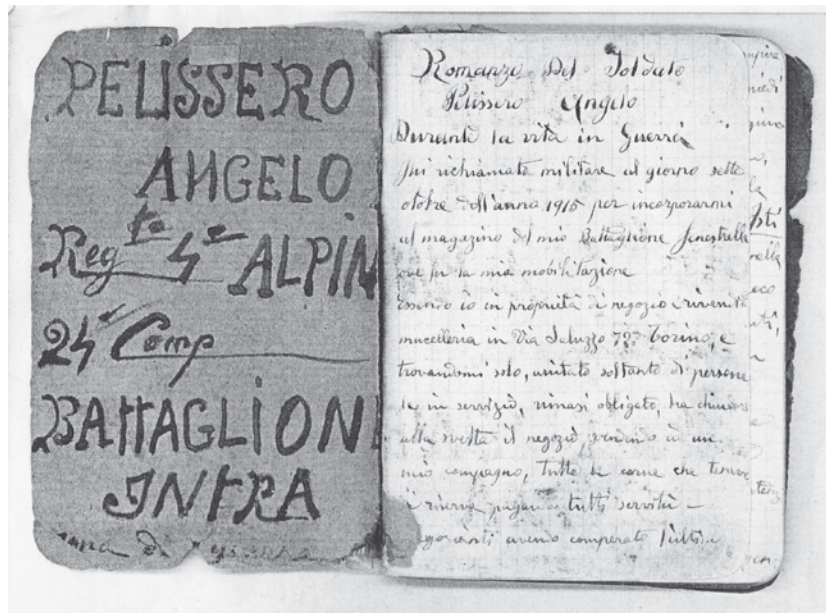 PELISSERO
ANGELO
Reg to 4e ALPIN
24a Comp
BATTAGLION
INTRA
Romanzo Del Soldato
Pelissero Angelo
Durante la vita in Guerra
fui richiamato militare al giorno sette
otobre dell'anno 1915 per incorporarmi
al magazino del mio Battaglione Fenestrelle
ove fu la mia mobilitazione
Essendo io in proprietà di negozio e rivendita
macelleria in Via Saluzzo Torino, e
trovandomi solo, aiutato soltanto di persone
in servizio, rimasi obligato, ha chiudere
alla svelta il negozio, vendendo a un
mio compagno, tutte le carne che tenevo
di riserva pagando tutti
negozianti avendo comperato